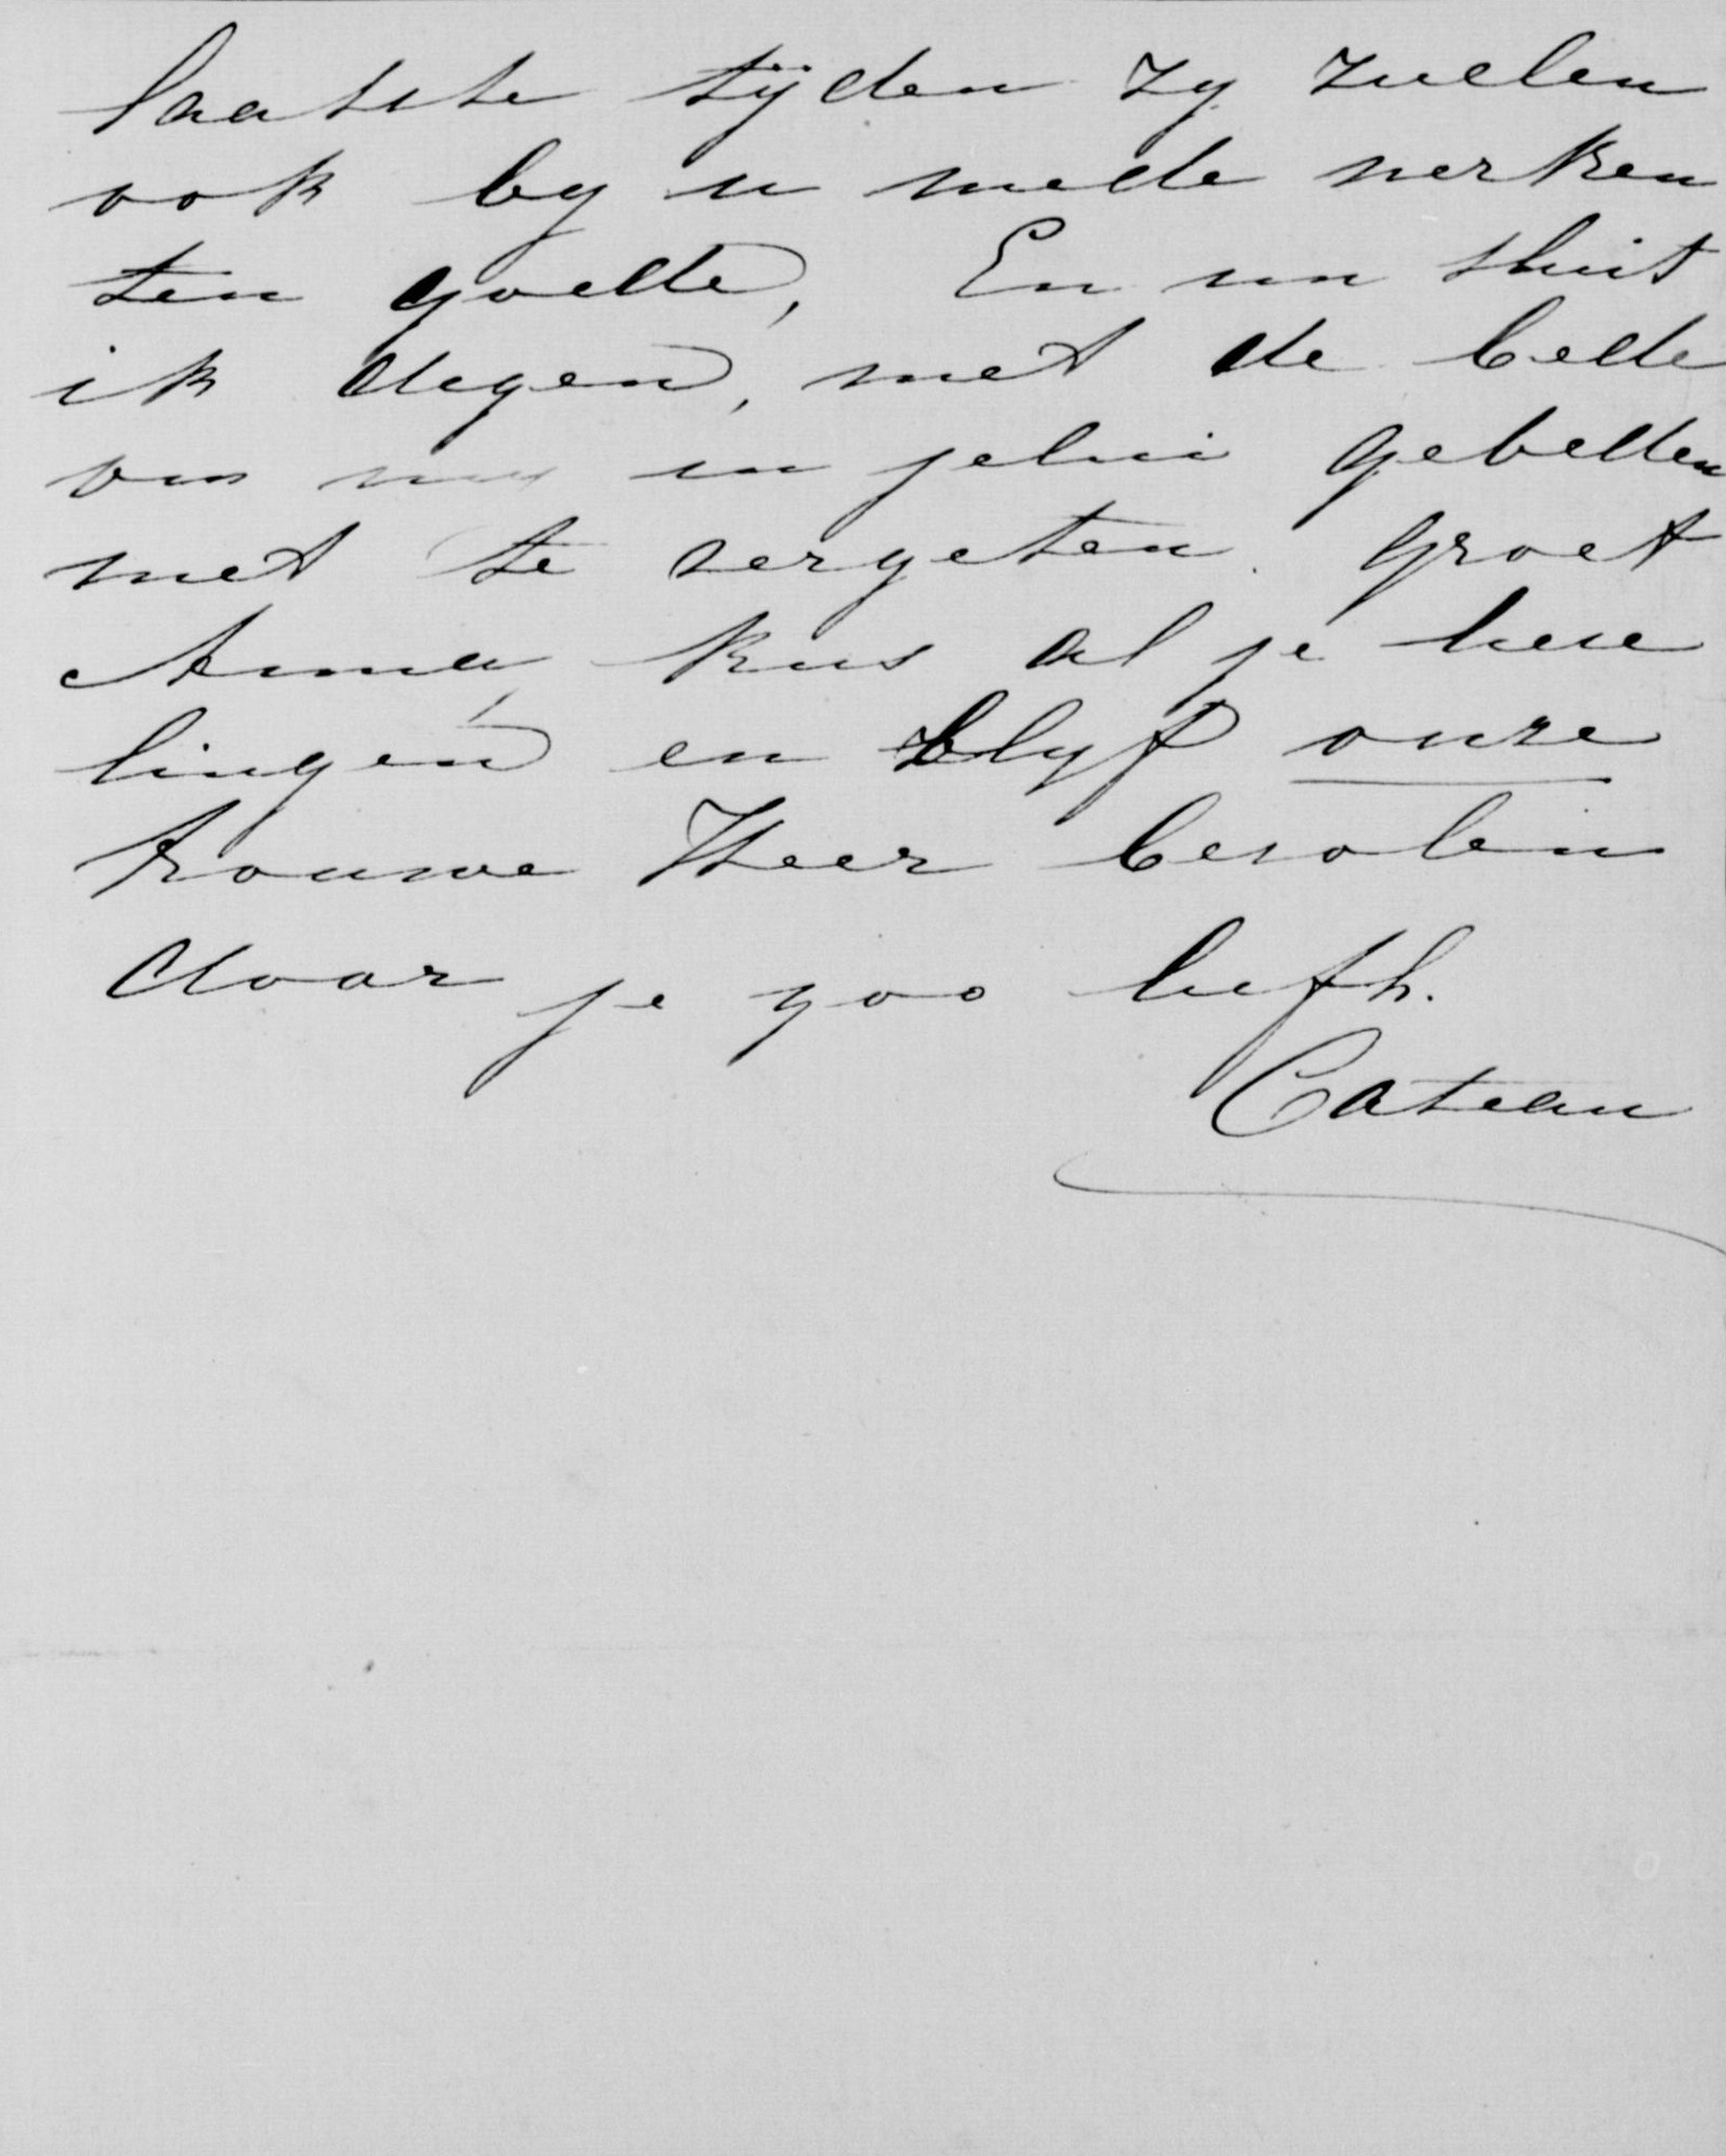 laatste tijden zy zullen
ook by u mede werken
ten goede, En nu sluit
ik degen, met de bede
om my in jelui gebeden
niet te vergeten. Groet
Anna, kus al je lieve
lingen en blyf onze
trouwe Heer bevolen
door je zoo liefh.
Cateau